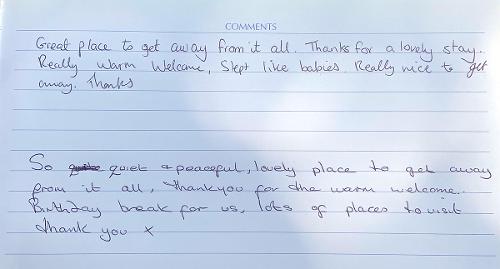 COMMENTS
Great place to get away from it all. Thanks for a lovely stay.
Really warm welcome, Slept like babies. Really nice to get
away. Thanks
So quiet & peaceful, lovely place to get away
from it all, thankyou for the warm welcome.
Birthday break for us, lots of places to visit
thank you x